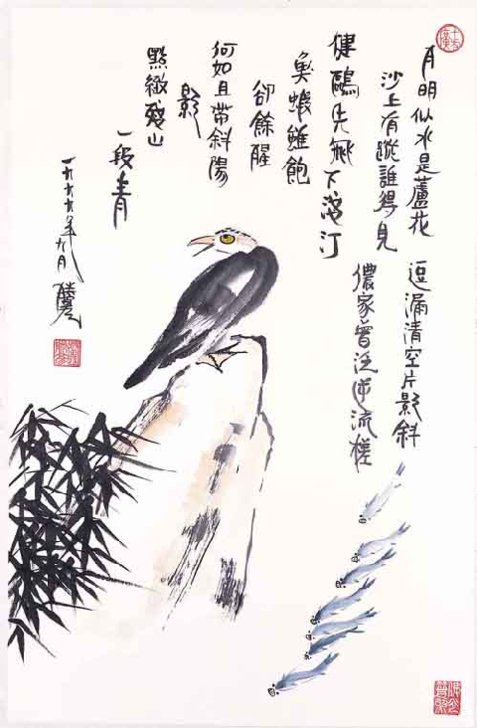 月明似水是蘆花
逗漏清空片影斜
沙上有蹤誰得見
儂家曾泛逆流槎
健鷗先飛下汀
魚蝦雖飽
卻餘醒
何如且帶斜陽
影
點緻殘山
一段青
一九六六年九月